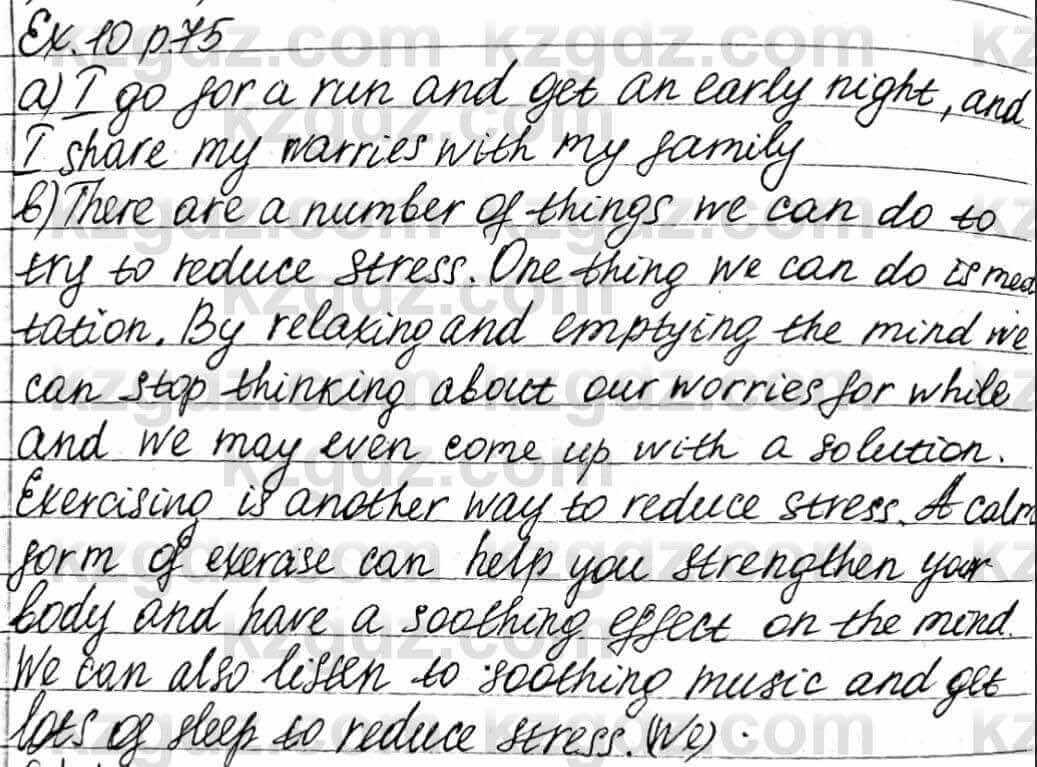 Ex. 10 p.75
a) I go for a run and get an early night, and
I share my warries with my family
b) There are a number of things we can do to
try to reduce stress. One thing we can do is med
tation. By relaxing and emptying the mind we
can stop thinking about our worries for while
and we may even come up with a solution.
Exercising is another way to reduce stress. A calm
form of exercise can help you strengthen your
body and have a soothing effect on the mind.
We can also listen to soothing music and get
lots of sleep to reduce stress. (We)
kzgdz.com